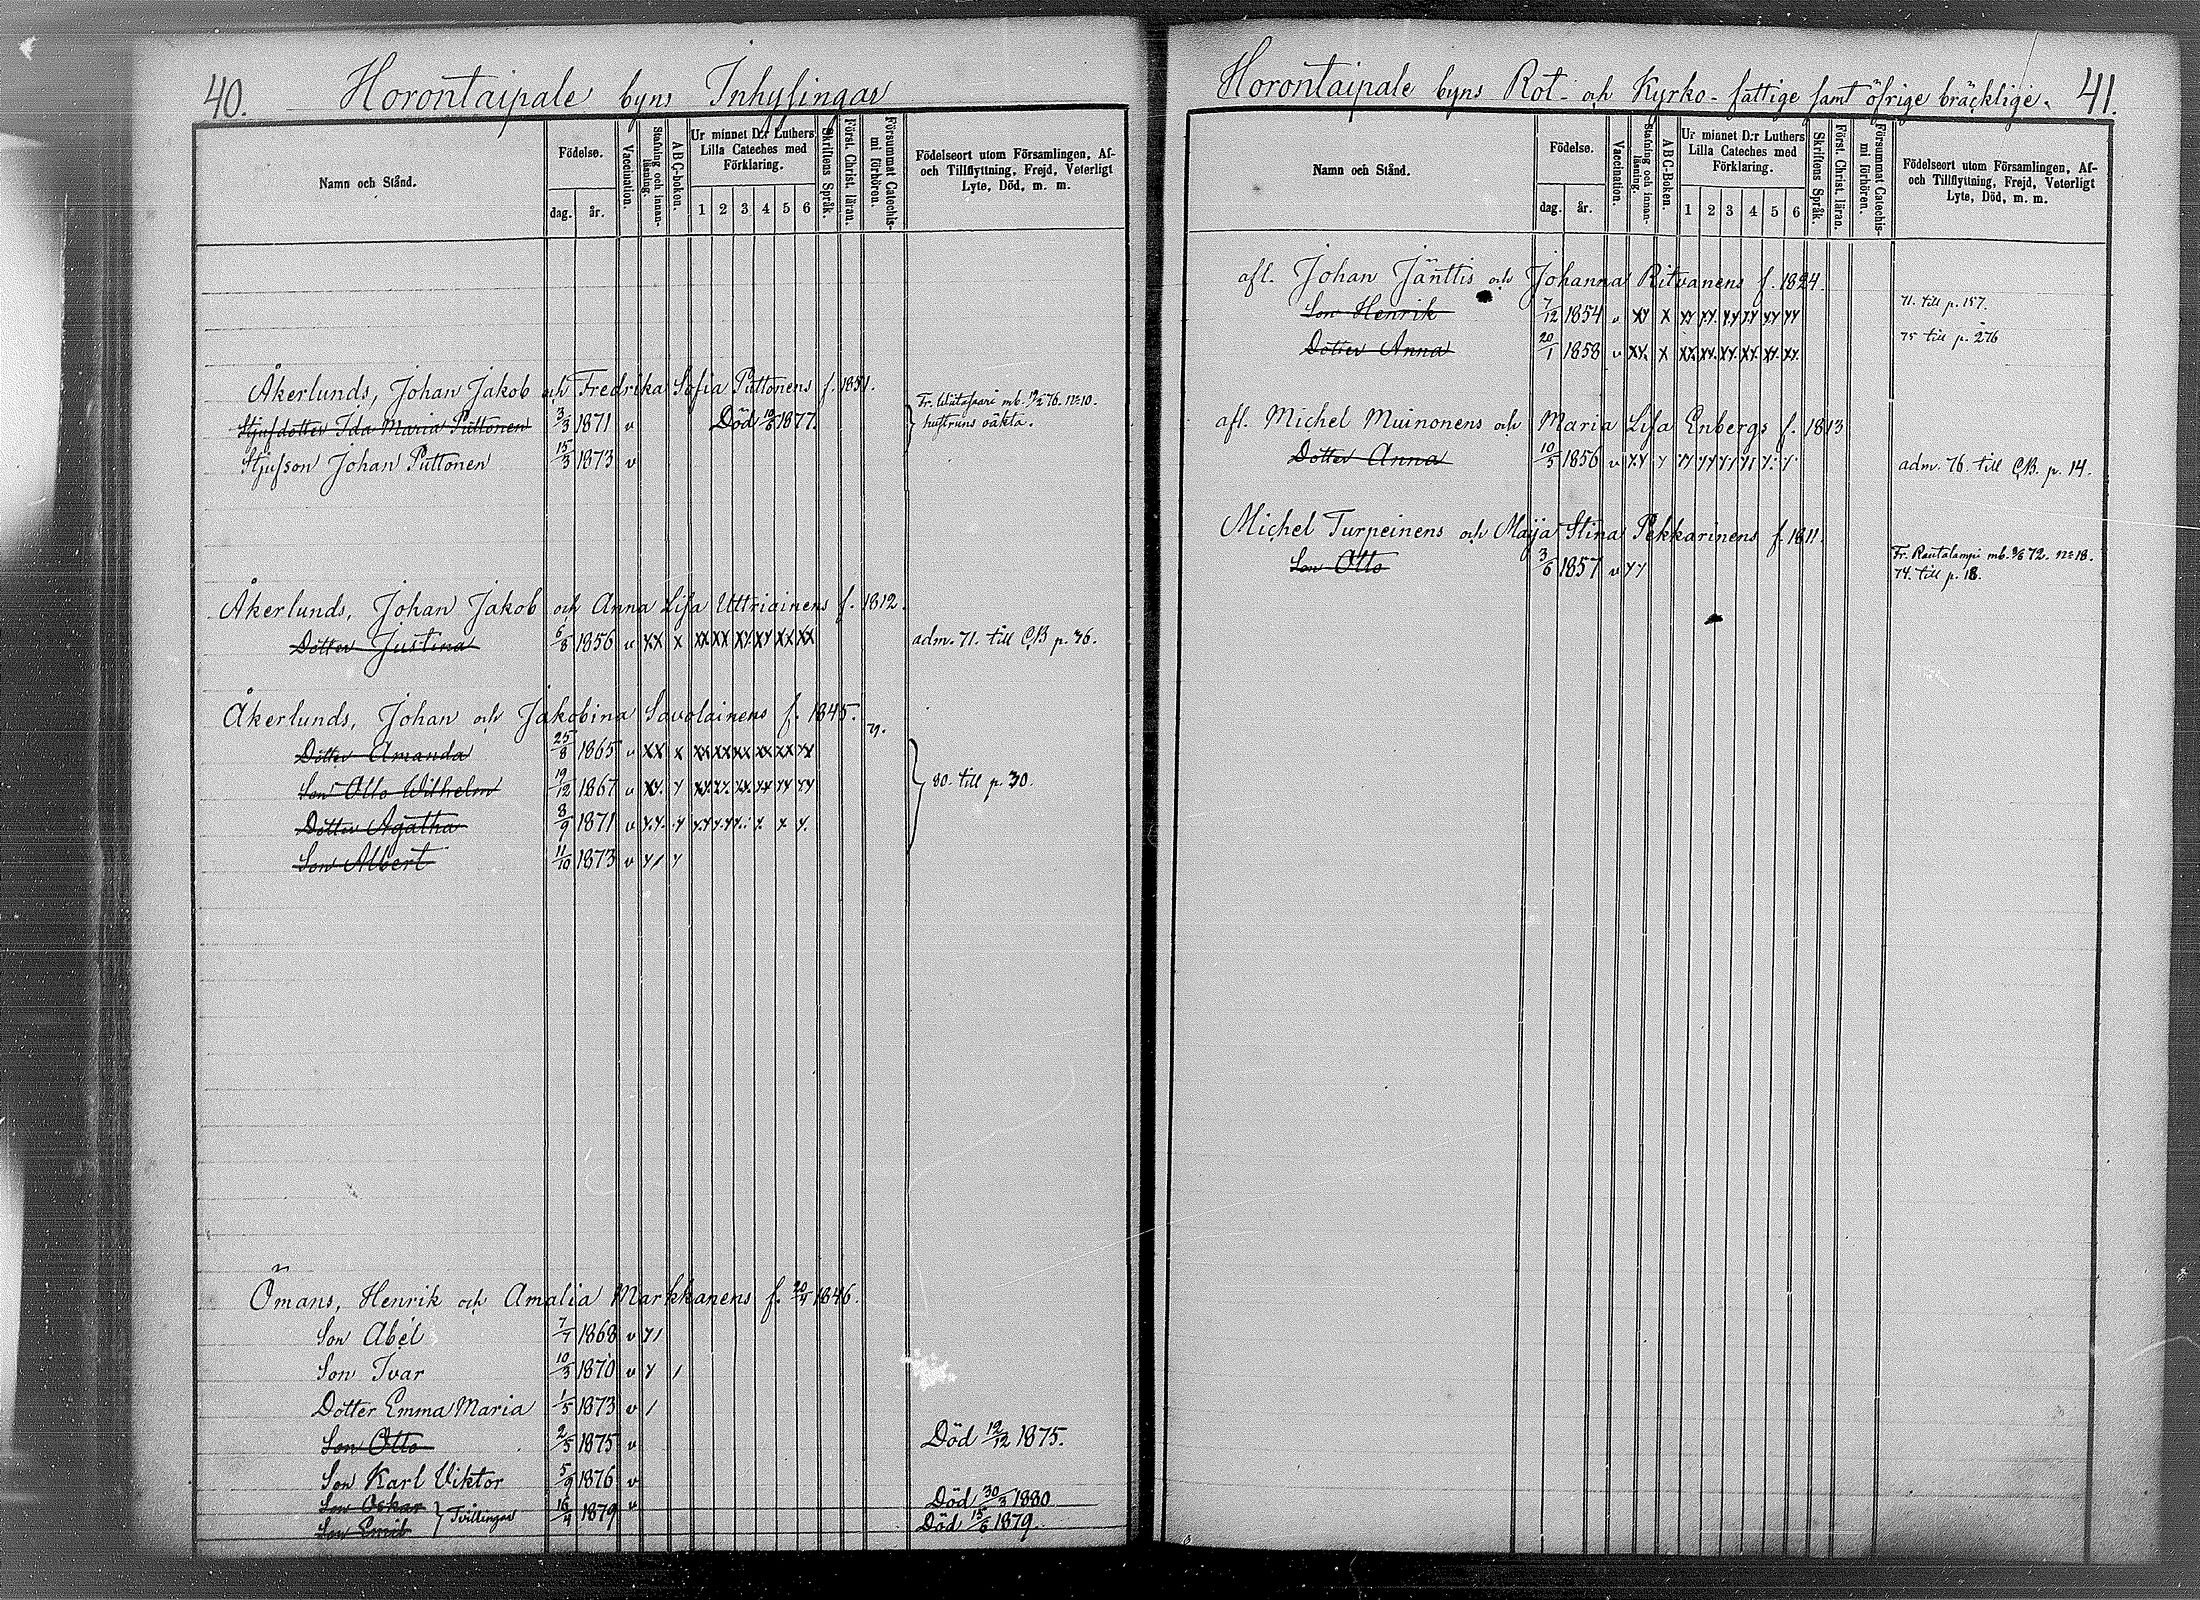 40. Horontaipale byns Inhysingar
Namn och Stånd.
Födelse.
dag. år.
Vaccination.
Stafning och innanläsning.
ABC-boken.
Ur minnet D:r Luthers Lilla Cateches med Förklaring.
1 2 3 4 5 6
Skriftens Språk.
Först. Christ. läran.
Försummat Catechismi förhören.
Födelseort utom Församlingen, Af- och Tillflyttning, Frejd, Veterligt Lyte, Död, m. m.
Åkerlunds, Johan Jakob och Fredrika Sofia Puttonens f. 1851.
Stjufdotter Ida Maria Puttonen 3/3 1871 v Död 1877. Fr. Wiitasaari mb. 76. No 10.
Stjufson Johan Puttonen 15/3 1873 v hustruns oäkta.
Åkerlunds, Johan Jakob och Anna Lisa Uttriainens f. 1812.
Dotter Justina 6/8 1856 v xx x xx xx xx xx xx xx adm. 71. till CB p. 36.
Åkerlunds, Johan och Jakobina Savolainens f. 1845.
79.
Dotter Amanda 25/8 1865 v xx x xx xx xx xx xx xx
Son Otto Wilhelm 19/12 1867 v 80. till p. 30.
Dotter Agatha 8/9 1871 v
Son Albert 11/10 1873 v
Ömans, Henrik och Amalia Markkanens f. 1846.
Son Abel 7/7 1868 v
Son Ivar 10/3 1870 v
Dotter Emma Maria 1/5 1873 v
Son Otto 2/5 1875 v Död 19/12 1875.
Son Karl Viktor 5/9 1876 v
Son Oskar } Tvillingar 16/4 1879 v Död 30/3 1880
Son Emil Död 15/6 1879.
Horontaipale byns Rot- och Kyrko-fattige samt öfrige bräcklige. 41.
Namn och Stånd.
Födelse.
dag. år.
Vaccination.
Stafning och innanläsning.
ABC-Boken.
Ur minnet D:r Luthers Lilla Cateches med Förklaring.
1 2 3 4 5 6
Skriftens Språk.
Först. Christ. läran.
Försummat Catechismi förhören.
Födelseort utom Församlingen, Af- och Tillflyttning, Frejd, Veterligt Lyte, Död, m. m.
afl. Johan Jänttis och Johanna Ritvanens f. 1824.
Son Henrik 7/12 1854 v 71. till p. 157.
Dotter Anna 20/1 1858 v 75 till p. 276
afl. Michel Muinonens och Maria Lisa Enbergs f. 1813
Dotter Anna 10/5 1856 v adm. 76. till CB. p. 14.
Michel Turpeinens och Maja Stina Pekkarinens f. 1811.
Son Otto 3/6 1857 v Fr. Rautalampi mb. 72. No 18.
74. till p. 18.